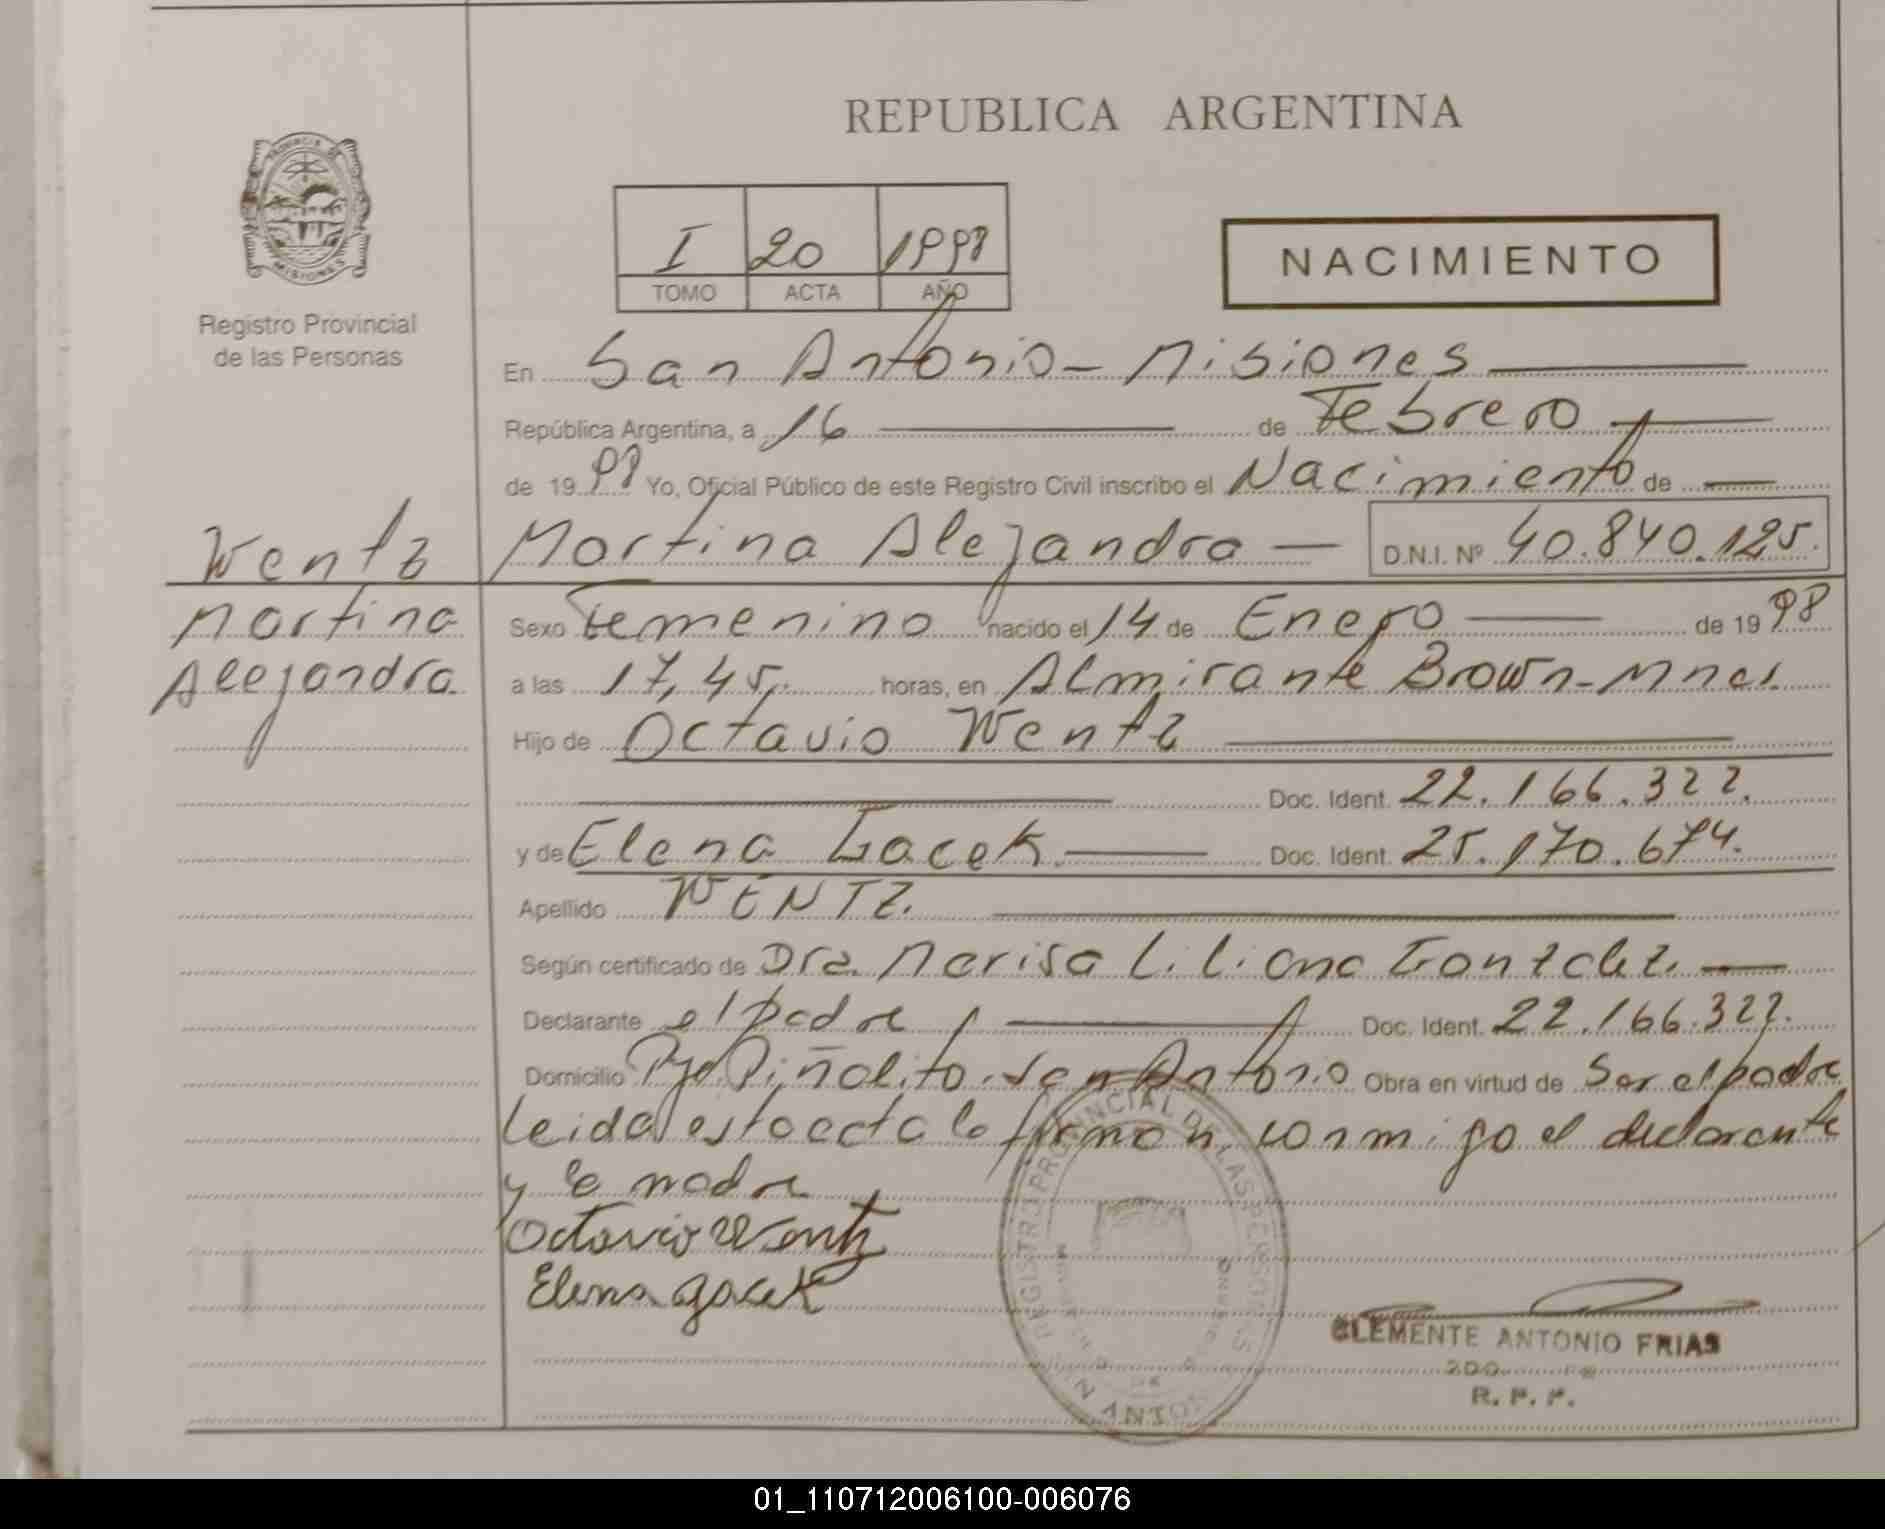 REPUBLICA ARGENTINA
PROVINCIA DE MISIONES
Registro Provincial
de las Personas
I 20 1998
TOMO ACTA AÑO
NACIMIENTO
En San Antonio - Misiones
República Argentina, a 16 de Febrero
de 1998 Yo, Oficial Público de este Registro Civil inscribo el Nacimiento de
Wentz Martina Alejandra D.N.I. Nº 40.840.125.
Martina Sexo Femenino nacido el 14 de Enero de 1998
Alejandra a las 17,45 horas, en Almirante Brown - Mnes.
Hijo de Octavio Wentz
Doc. Ident. 22.166.322.
y de Elena Gacek Doc. Ident. 25.170.674.
Apellido WENTZ.
Según certificado de Dra. Marisa Liliana Gonzalez.
Declarante el padre Doc. Ident. 22.166.322.
Domicilio Pje. Piñalito - San Antonio Obra en virtud de Ser el padre
Leida esta acta la firman conmigo el declarante
y la madre
Octavio Wentz
Elena Gacek
REGISTRO PROVINCIAL DE LAS PERSONAS
CLEMENTE ANTONIO FRIAS
R. P. P.
01_110712006100-006076